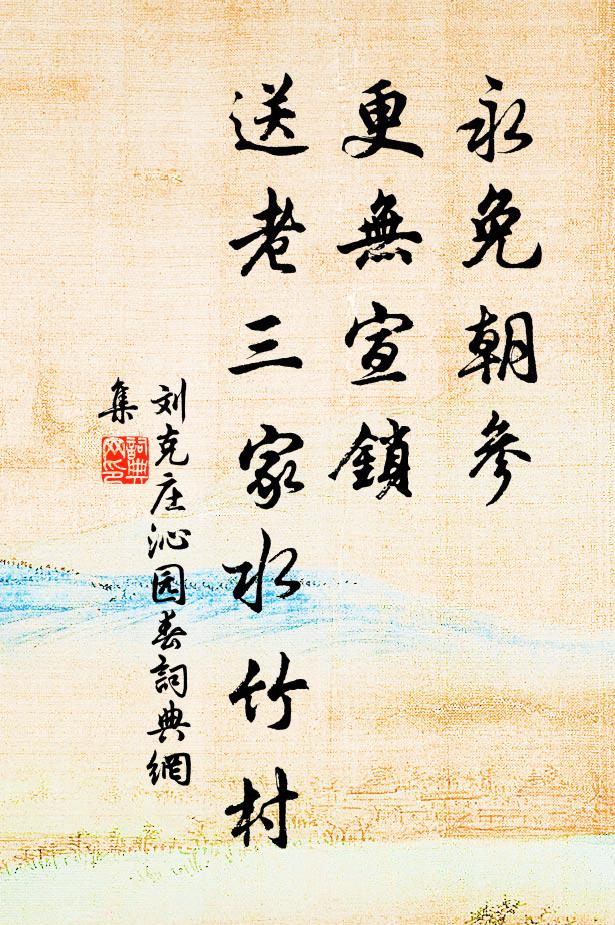 永免朝參
更無宣鎖
送老三家水竹村
刘克庄沁园春詞典網
集
詞典